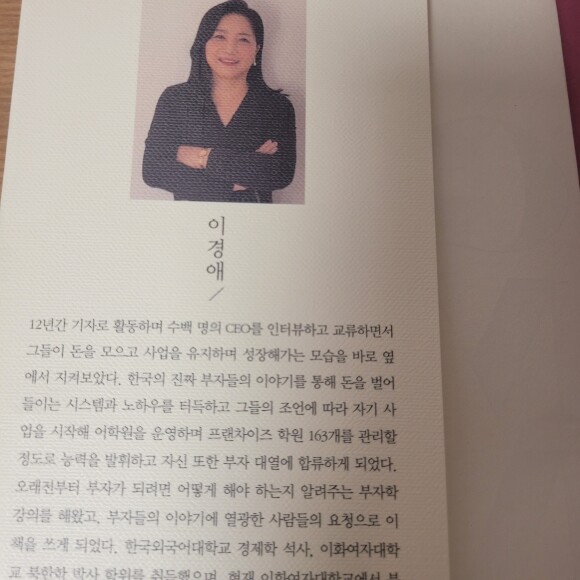 이경애
12년간 기자로 활동하며 수백 명의 CEO를 인터뷰하고 교류하면서
그들이 돈을 모으고 사업을 유지하며 성장해가는 모습을 바로 옆
에서 지켜보았다. 한국의 진짜 부자들의 이야기를 통해 돈을 벌어
들이는 시스템과 노하우를 터득하고 그들의 조언에 따라 자기 사
업을 시작해 어학원을 운영하며 프랜차이즈 학원 163개를 관리할
정도로 능력을 발휘하고 자신 또한 부자 대열에 합류하게 되었다.
오래전부터 부자가 되려면 어떻게 해야 하는지 알려주는 부자학
강의를 해왔고, 부자들의 이야기에 열광한 사람들의 요청으로 이
책을 쓰게 되었다. 한국외국어대학교 경제학 석사, 이화여자대학
교 북한학 박사 학위를 취득했으며, 현재 이화여자대학교에서 북